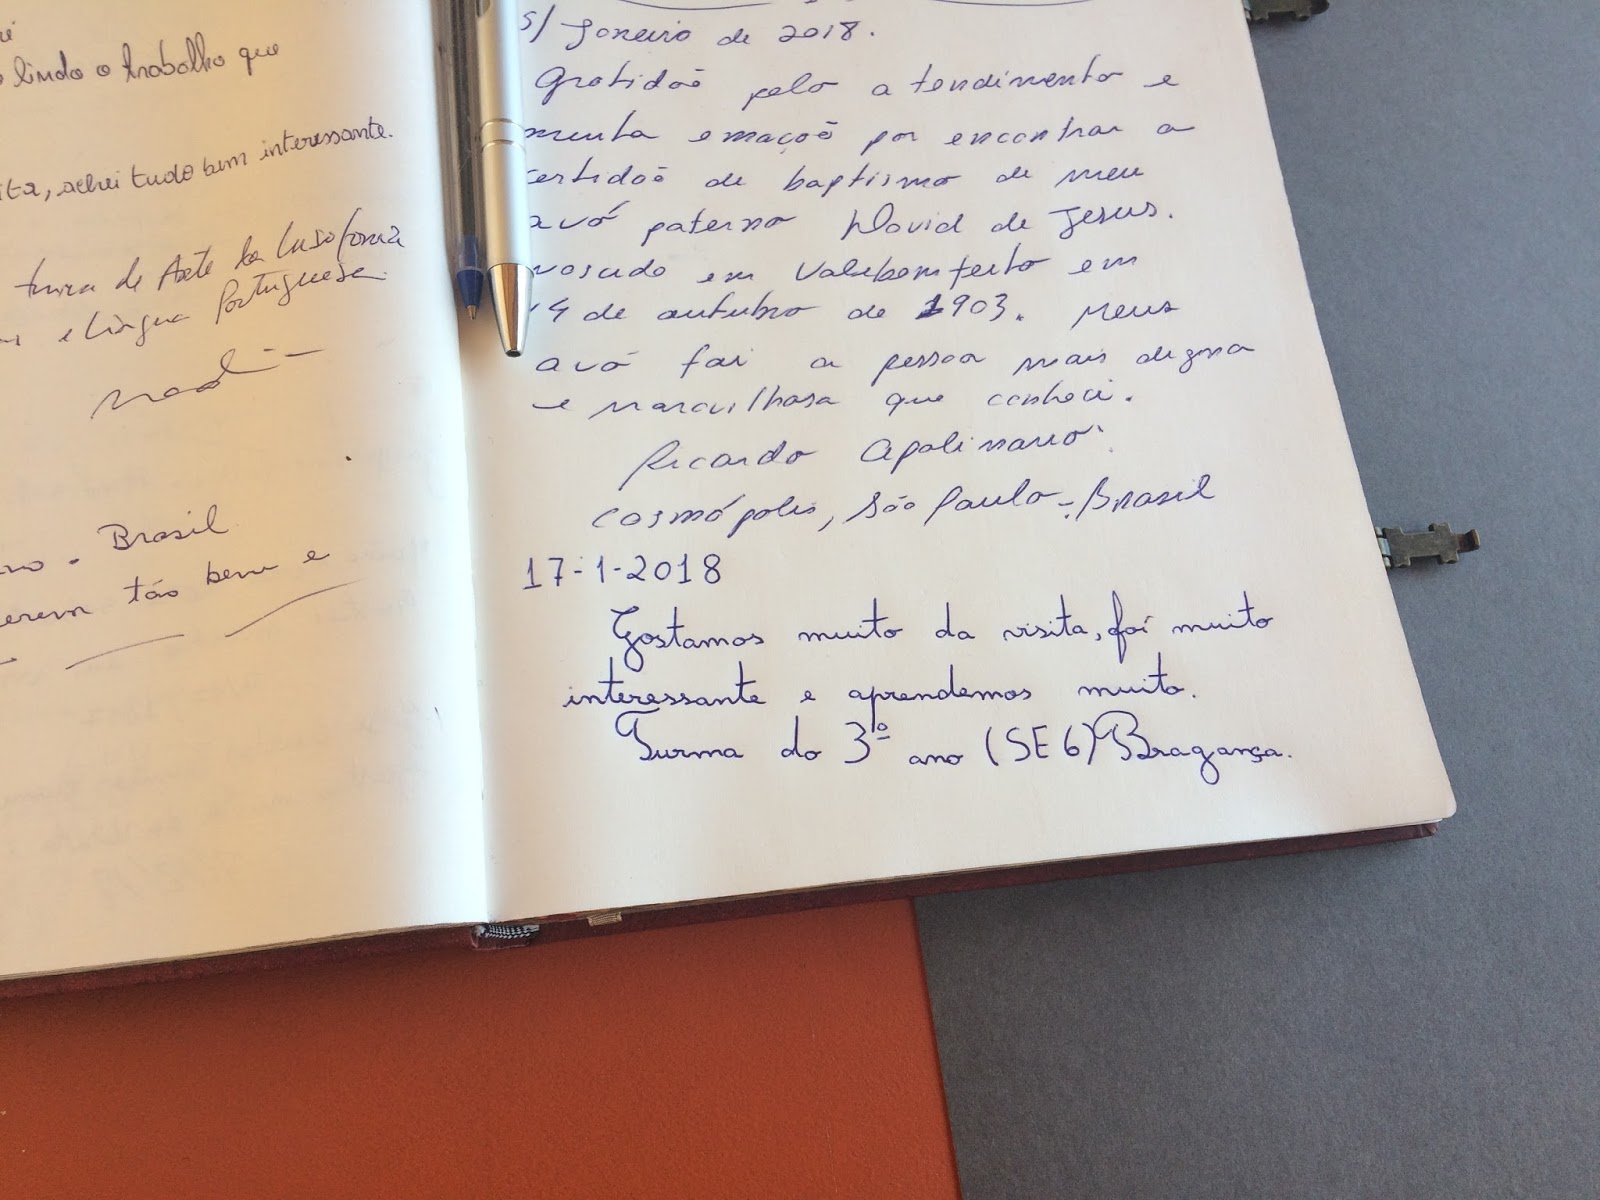 lindo o trabalho que
achei tudo bem interessante.
turma de Arte da Lusofonia
e Língua Portuguesa
- Brasil
tão bem e
5/ Janeiro de 2018.
Gratidão pelo atendimento e
muita emoção por encontrar a
certidão de baptismo de meu
avó paterno David de Jesus.
nascido em Valebemfeito em
14 de outubro de 1903. Meus
avó foi a pessoa mais digna
e maravilhosa que conheci.
Ricardo Apolinario
Cosmópolis, São Paulo - Brasil
17-1-2018
Gostamos muito da visita, foi muito
interessante e aprendemos muito.
Turma do 3º ano (SE6) Bragança.